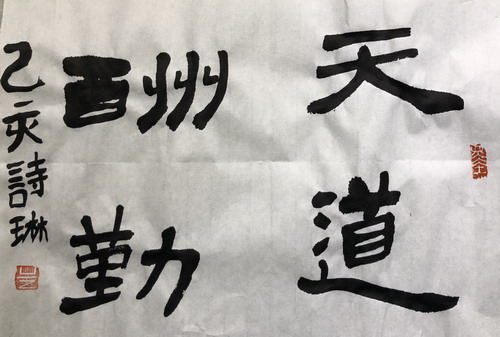 天道
酬勤
己亥詩琳